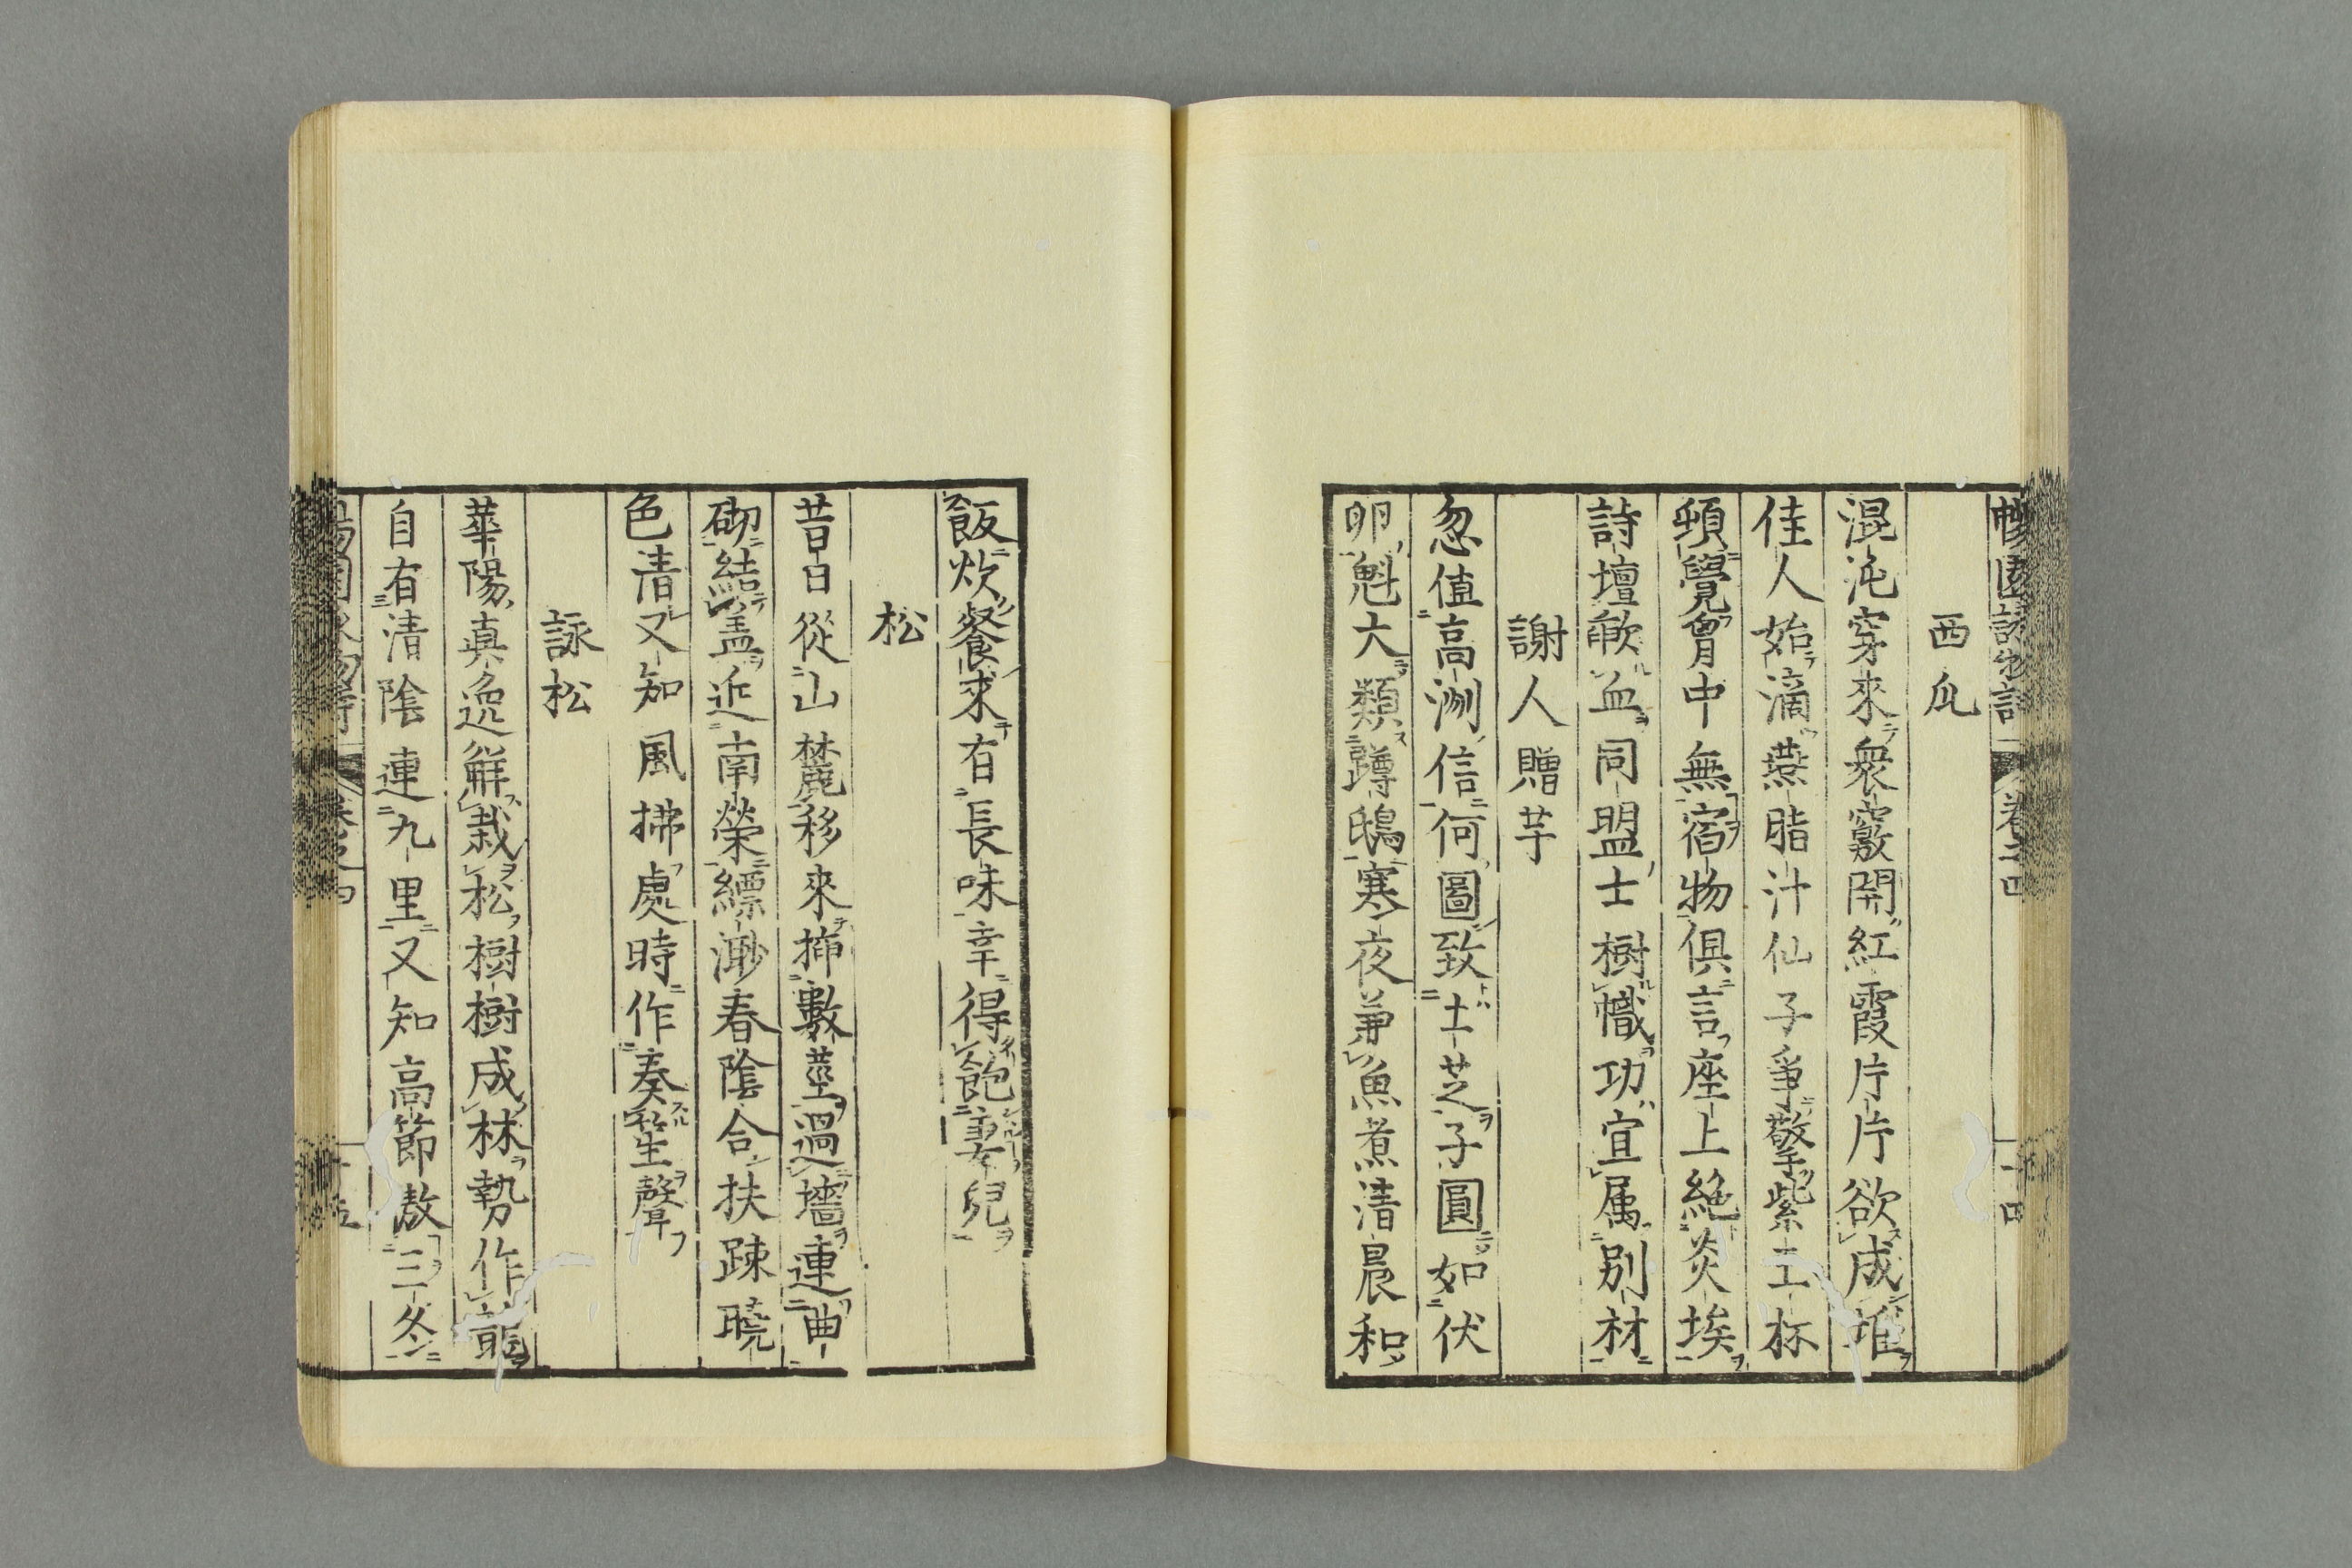 西瓜
混沌穿來衆竅開紅霞片片欲成堆
佳人始滴燕脂汁仙子爭擎紫玉杯
頓覺胷中無宿物俱言座上絶炎埃
詩壇歃血同盟士樹幟功宜属別材
謝人贈芋
忽值高測信何圖致土芝子圓如伏
卵魁大類蹲鴟寒夜兼魚煮清晨和
飯炊餐求有長味幸得飽妻兒
松
昔日從山麓移來挿數莖過墻連曲
砌結盖近南榮縹渺春陰合扶踈曉
色清又知風拂處時作奏笙聲
詠松
華陽真逸解栽松樹樹成林勢作龍
自有清陰連九里又知高節敖三冬